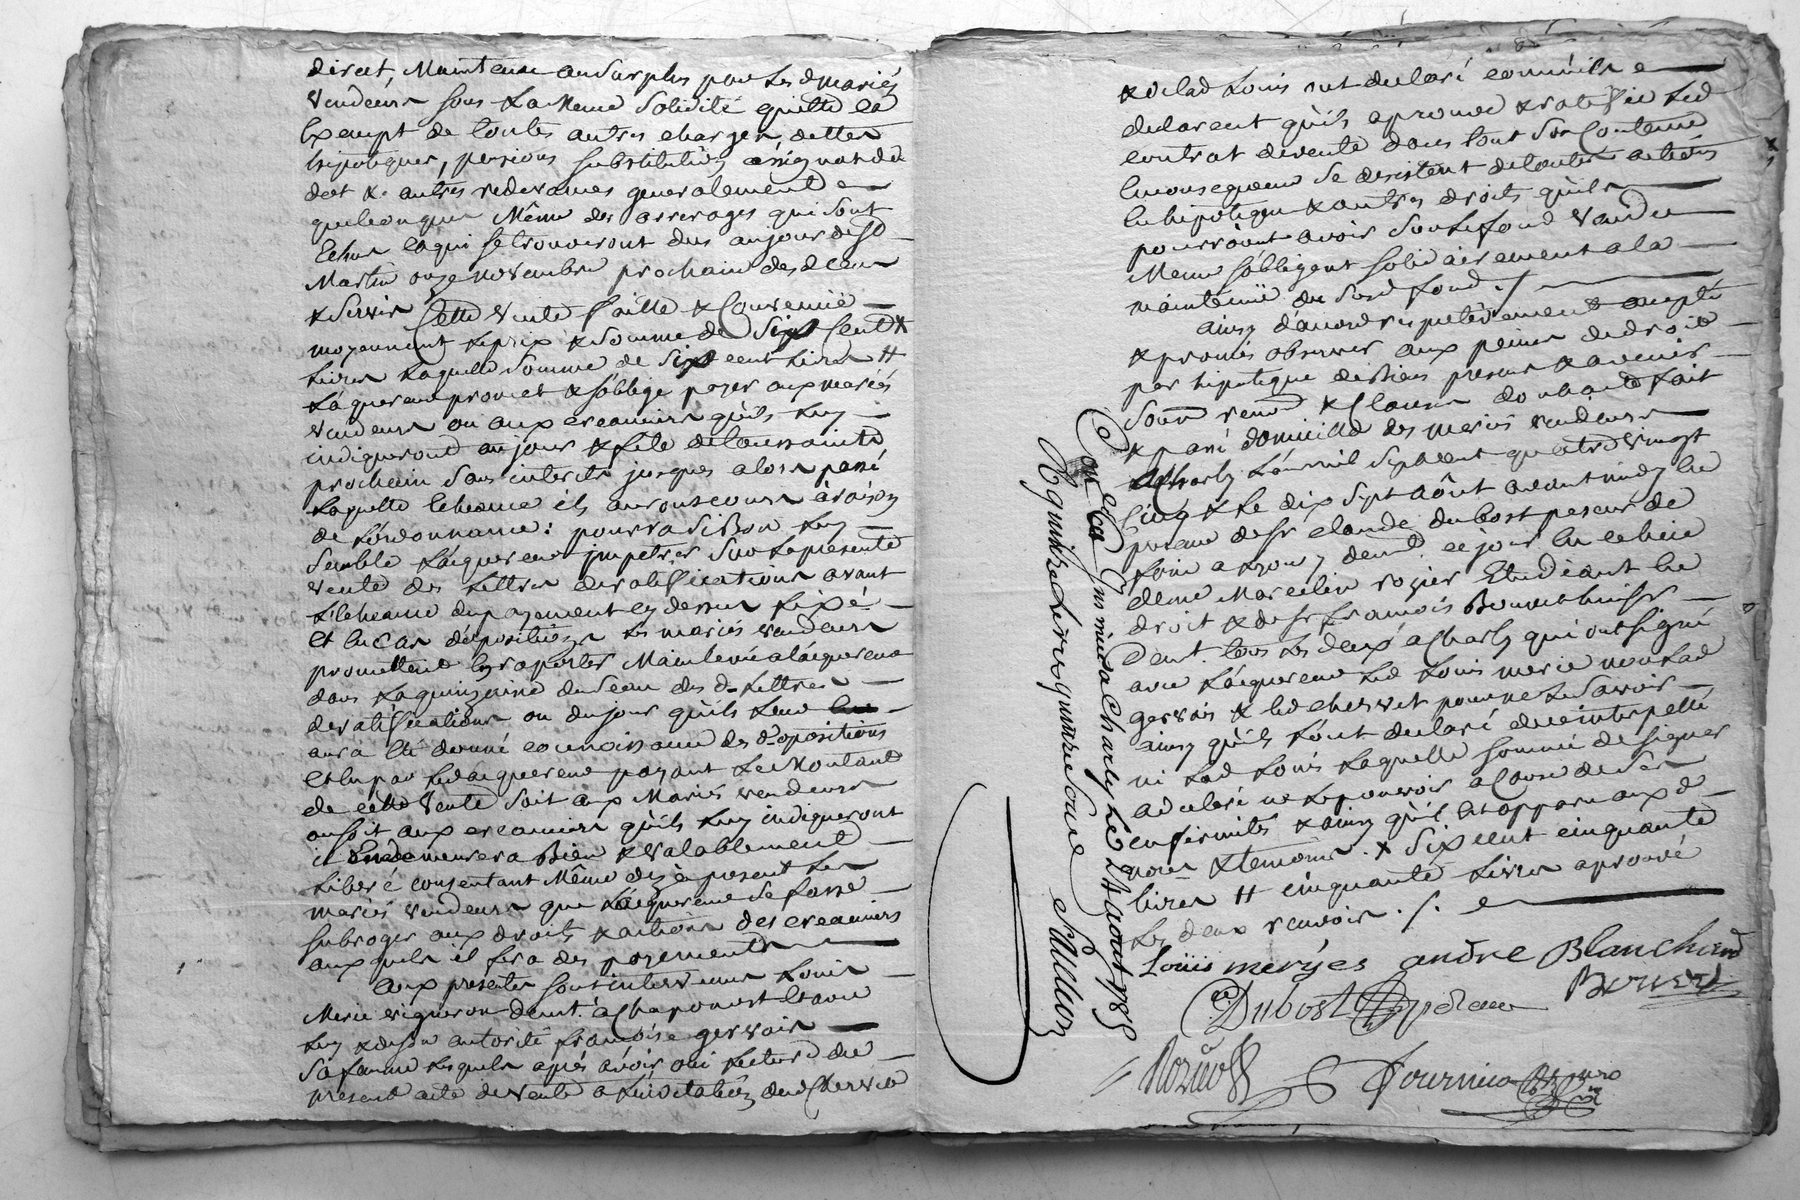 direct, Maintenue au Surplus par les d mariés
vendeurs sous la même Solidité quitte et
Exempt de toutes autres charges, dettes
hipoteques, pensions substitution
dot & autres redevances generalement
quelconques Même des arrerages qui sont
Echus et qui se trouveront dus au jour de St
Martin onze novembre prochain
& servis Cette vente faitte & Convenüe
moyennant le prix & Somme de Six Cent X
livres laquelle Somme de Six cent livres #
L'aquereur promet & s'oblige payer aux mariés
vendeurs ou aux creanciers qu'ils luy
indiqueront au jour & fête de toussaints
prochain sans interets jusques alors passé
laquelle echeance ils auront cours à raison
de l'ordonnance : pourra si Bon luy
Semble l'aquereur impetrer sur la presente
vente des Lettres de ratifications avant
L'echeance du payement cy dessus fixé
Et en Cas d'opposition les mariés vendeurs
promettent luy raporter Mainlevée a l'aquereur
dans la quinzaine du Seau des d Lettres
de ratifications ou du jour qu'ils leur
aura été donné connoissance des d opositions
Et en par led acquereur payant le Montant
de cette vente soit aux Mariés vendeurs
ou soit aux creanciers qu'ils luy indiqueront
il demeurera Bien & valablement
Liberé consentant Même dez à present les
mariés vendeurs que l'aquereur se fasse
subroger aux droits & actions des creanciers
aux quels il fera des payements
aux presentes sont intervenus Louis
Merie vigneron demt. à Chaponost Et avec
luy & de son autorité françoise gervais
Sa femme lesquels après avoir oui lecture du
present acte de vente
& de lad Louis ont declaré
declarent qu'ils aprouve & ratiffie led
contrat de vente dans tout Son Contenu
En consequence se desistent de toutes actions
En hipoteque & autres droits qu'ils
pourroient avoir sur le fond vendu
Meme s'obligent solidairement a la
maintenüe du Susd fond ./
ainsy d'accord respectivement accepté
& promis observer aux peines de droit
par hipoteque de Biens presens & avenir
Sous renon & Clauses dont acte fait
& passé domicille des mariés vendeurs
a Charly L'an mil sept cent quatre vingt
Cinq & le dix sept aôut avant midy En
presence de Sr claude dubost peseur de
foin a Lyon y demt ce jour En ce lieu
de me Marcelin rozier Etudiant En
droit & de Sr françois Bonnet huissr
demt. tous les deux a Charly qui ont signé
avec L'aquereur led Louis merie non lad
gervais & led chervet pour ne le savoir
ainsy qu'ils l'ont declaré de ce interpellé
ni lad Louis laquelle sommée de signer
a declaré ne le pouvoir a Cause de Ses
enfirmités & ainsy qu'il Est apparu aux d
noter & temoins . X Six cent cinquante
livres # cinquante Livres aprouvé
Les deux renvois . /.
Louïs meryes andre Blanchard
Dubost Bonnet
Rozier Fournier
Con elle Ins mine a Charly Le 24 aout 1785
Rx quinze Livres quinze Sous